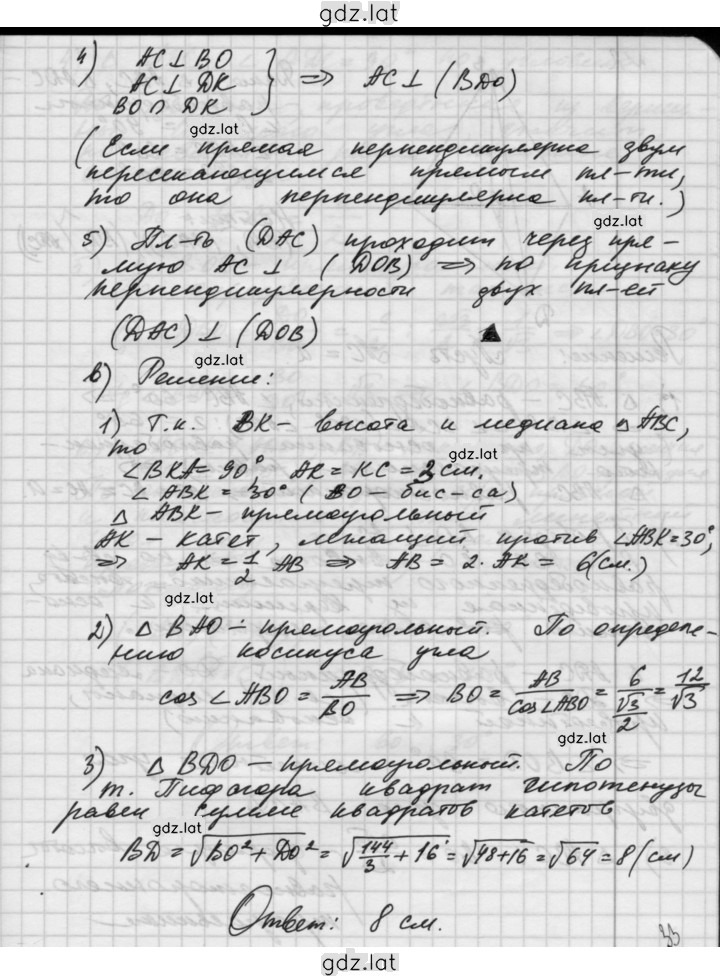 gdz.lat
4) AC ⊥ BO
AC ⊥ DK
BO ∩ DK } ⇒ AC ⊥ (BDO)
gdz.lat
(Если прямая перпендикулярна двум
пересекающимся прямым пл-ти,
то она перпендикулярна пл-ти.)
gdz.lat
5) Пл-ть (DAC) проходит через пря-
мую AC ⊥ (DOB) ⇒ по признаку
перпендикулярности двух пл-ей
(DAC) ⊥ (DOB) ▲
gdz.lat
в) Решение:
1) Т.к. BK - высота и медиана △ ABC,
то
gdz.lat
∠BKA = 90°, AK = KC = 3 см.
∠ ABK = 30° (BO - бис-са)
△ ABK - прямоугольный
AK - катет, лежащий против ∠ABK = 30°,
⇒ AK = 1/2 AB ⇒ AB = 2 · AK = 6 (см.)
gdz.lat
2) △ BAO - прямоугольный. По определе-
нию косинуса угла
cos ∠ ABO = AB/BO ⇒ BO = AB/cos∠ABO = 6/(√3/2) = 12/√3
gdz.lat
3) △ BDO - прямоугольный. По
т. Пифагора квадрат гипотенузы
равен сумме квадратов катетов
gdz.lat
BD = √(BO² + DO²) = √(144/3 + 16) = √(48+16) = √64 = 8 (см)
Ответ: 8 см.
33
gdz.lat